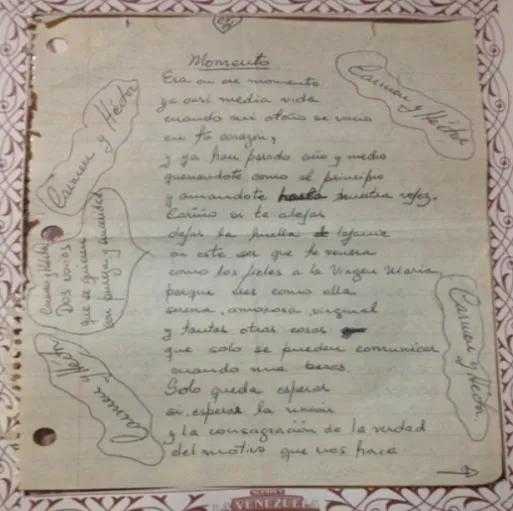 Momento
Era en ese momento
ya casi media vida
cuando mi otoño se vacia
en tu corazón,
y ya han pasado año y medio
queriendote como al principio
y amandote hasta nuestra vejez.
Cariño si te alejas
dejas la huella
en este ser que te venera
como los fieles a la Virgen Maria
porque eres como ella
serena, amorosa, virginal
y tantas otras cosas
que solo se pueden comunicar
cuando me besas.
Solo queda esperar
si, esperar la unión
y la consagración de la verdad
del motivo que nos hace
Carmen y Héctor
Carmen y Héctor
Carmen y Héctor
Dos novios
que se quieren
con pureza y
Carmen y Héctor
Carmen y Héctor
VENEZUELA